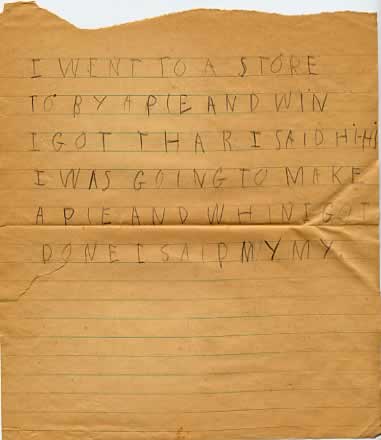 I WENT TO A STORE
TO BY A PIE AND WIN
I GOT THAR I SAID Hi-Hi
I WAS GOING TO MAKE
A PIE AND WHIN I GOT
DONE I SAID MY MY